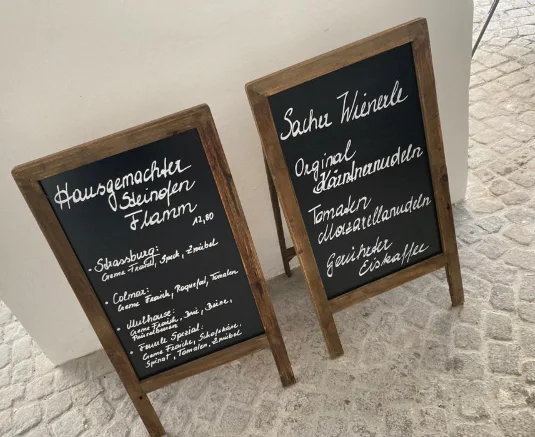 Hausgemachter
Steinofen
Flamm
12,80
• Strassburg:
Creme Fraich, Speck, Zwiebel
• Colmar:
Creme Fraich, Roquefal, Tomaten
• Mulhouse:
Creme Fraich, Brie, Birne,
Preiselbeeren
• Feuerle Spezial:
Creme Fraiche, Schafskäse,
Spinat, Tomaten, Zwiebel
Sacher Wienerle
Orginal
Kärntnernudeln
Tomaten
Mozzarellanudeln
Gerührter
Eiskaffee